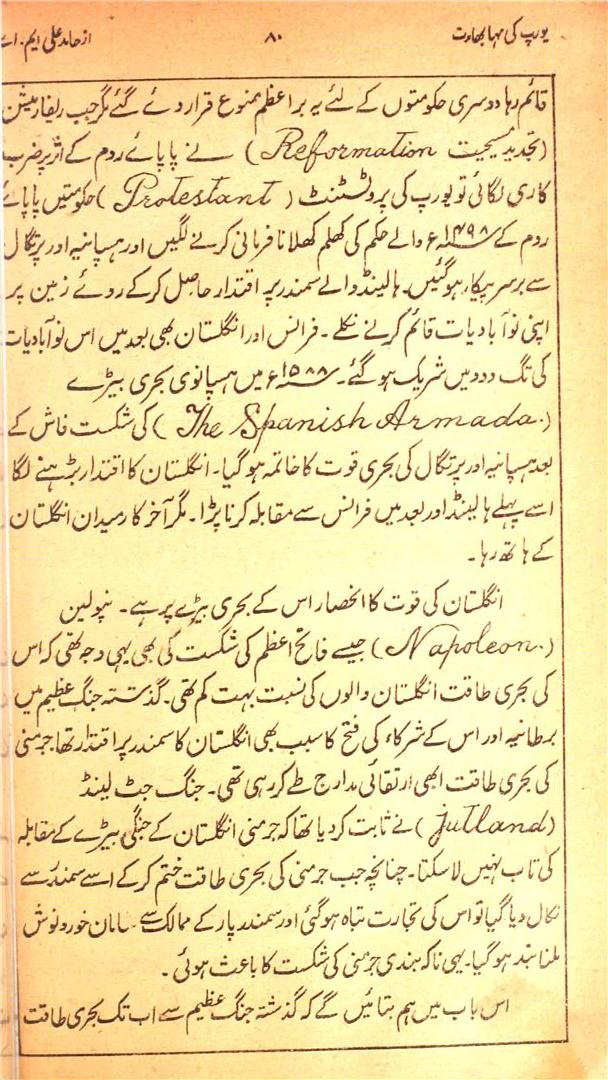 یورپ کی مہا بھارت ۸۰ از حامد علی ایم۔ اے
قائم رہا دوسری حکومتوں کے لئے یہ براعظم ممنوع قرار دے گئے مگر جب ریفارمیشن
(تجدید مسیحیت Reformation) نے پاپائے روم کے اثر پر ضرب
کاری لگائی تو یورپ کی پروٹسٹنٹ (Protestant) حکومتیں پاپائے
روم کے ۱۴۹۸ء والے حکم کی کھلم کھلا نافرمانی کرنے لگیں اور ہسپانیہ اور پرتگال
سے برسر پیکار ہو گئیں۔ ہالینڈ والے سمندر پر اقتدار حاصل کرکے روئے زمین پر
اپنی نوآبادیات قائم کرنے نکلے۔ فرانس اور انگلستان بھی بعد میں اس نوآبادیات
کی تگ و دو میں شریک ہو گئے۔ ۱۵۸۸ء میں ہسپانوی بحری بیڑے
(The Spanish Armada.) کی شکست فاش کے
بعد ہسپانیہ اور پرتگال کی بحری قوت کا خاتمہ ہو گیا۔ انگلستان کا اقتدار بڑہنے لگا
اسے پہلے ہالینڈ اور بعد میں فرانس سے مقابلہ کرنا پڑا۔ مگر آخر کار میدان انگلستان
کے ہاتھ رہا۔
انگلستان کی قوت کا انحصار اس کے بحری بیڑے پر ہے۔ نپولین
(Napoleon.) جیسے فاتح اعظم کی شکست کی بھی یہی وجہ تھی کہ اس
کی بحری طاقت انگلستان والوں کی نسبت بہت کم تھی۔ گذشتہ جنگ عظیم میں
برطانیہ اور اس کے شرکاء کی فتح کا سبب بھی انگلستان کا سمندر پر اقتدار تھا جرمنی
کی بحری طاقت ابھی ارتقائی مدارج طے کر رہی تھی۔ جنگ جٹ لینڈ
(Jutland) نے ثابت کردیا تھا کہ جرمنی انگلستان کے جنگی بیڑے کے مقابلہ
کی تاب نہیں لا سکتا۔ چنانچہ جب جرمنی کی بحری طاقت ختم کرکے اسے سمندر سے
نکال دیا گیا تو اس کی تجارت تباہ ہو گئی اور سمندر پار کے ممالک سے سامان خورد و نوش
ملنا بند ہو گیا۔ یہی ناکہ بندی جرمنی کی شکست کا باعث ہوئی۔
اس باب میں ہم بتائیں گے کہ گذشتہ جنگ عظیم سے اب تک بحری طاقت